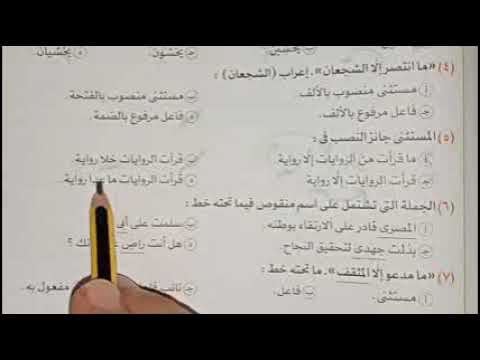 يخشون. يخشيان.
(٤) «ما انتصر إلا الشجعان». إعراب (الشجعان) :
أ مستثنى منصوب بالألف. ب مستثنى منصوب بالفتحة.
ج فاعل مرفوع بالألف. د فاعل مرفوع بالضمة.
(٥) المستثنى جائز النصب فى :
أ ما قرأت من الروايات إلا رواية. ب قرأت الروايات خلا رواية.
ج قرأت الروايات إلا رواية. د قرأت الروايات ما رواية.
(٦) الجملة التى تشتمل على اسم منقوص فيما تحته خط :
أ المصرى قادر على الارتقاء بوطنه. ب سلمت على
ج بذلت جهدى لتحقيق النجاح. د هل أنت راض ؟
(٧) «ما مدعو إلا المثقف». ما تحته خط :
أ مستثنى. ب فاعل. ج نائب مفعول به.